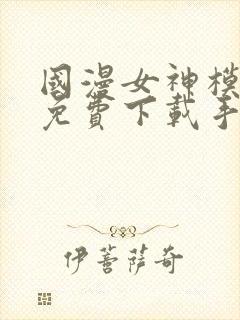 國漫女神模
免費下載手
伊蕾薩奇